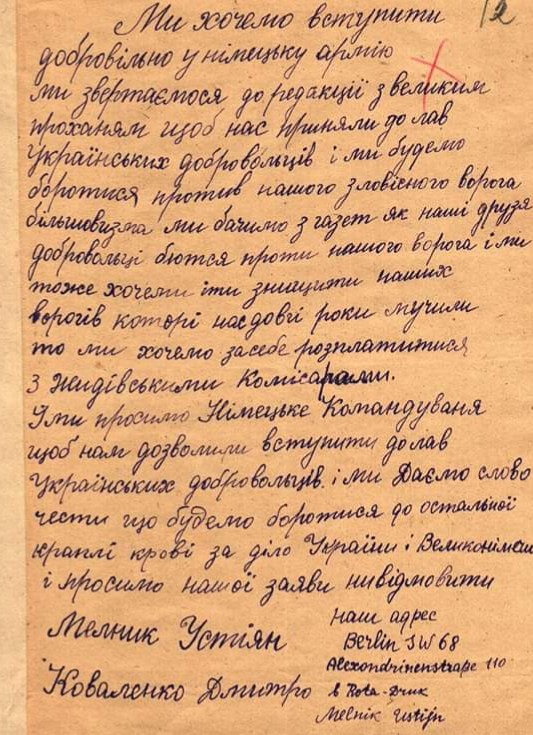 12
Ми хочемо вступити
добровільно у німецьку армію
ми звертаємося до редакції з великим
проханям щоб нас приняли до лав
Українських добровольців і ми будемо
боротися против нашого зловісного ворога
більшовизма ми бачимо з газет як наші друзя
добровольці бютєя проти нашого ворога і ми
тоже хочеми іти знищити наших
ворогів котрі нас довгі роки мучили
то ми хочемо засебе розплатитися
з жидівськими Комісарами.
І ми просимо Німецьке Командуваня
щоб нам дозволили вступити до лав
Українських добровольців. і ми Даємо слово
чести що будемо боротися до остальної
краплі крові за діло України і Великонімеш
і просимо нашої заяви нивідмовити
Мелник Устіян
Коваленко Дмитро
наш адрес
Berlin SW 68
Alexandrinenstraße 110
в Rota-Druk
Melnik Ustijn